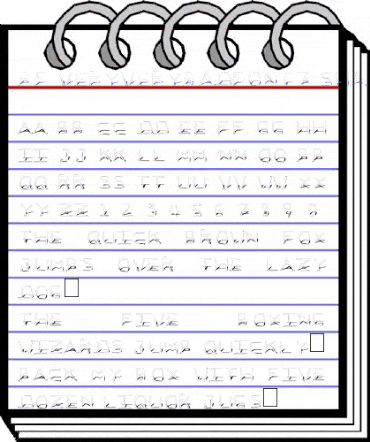 PF VERYVERYBADFONT2
AA BB CC DD EE FF GG HH
II JJ KK LL MM NN OO PP
QQ RR SS TT UU VV WW XX
YY ZZ 1 2 3 4 5 6 7 8 9 0
THE QUICK BROWN FOX
JUMPS OVER THE LAZY
DOG
THE FIVE BOXING
WIZARDS JUMP QUICKLY
PACK MY BOX WITH FIVE
DOZEN LIQUOR JUGS